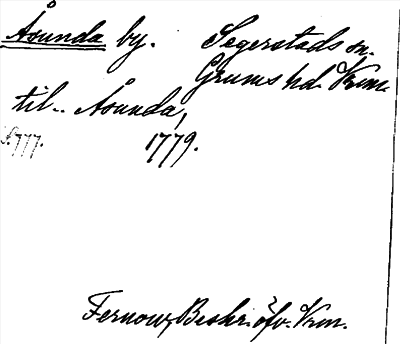 Åsunda by. Segerstads sn.
Grums hd. Vrml.
til.. Åsunda,
1779.
S. 777.
Fernow, Beskr. öfv. Vrm.